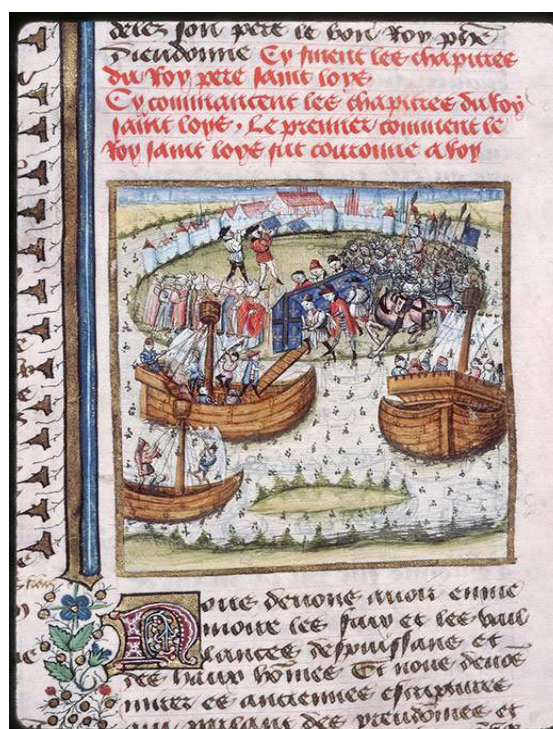 delez son pere le bon roy phe
dieudonne Cy finent les chapitres
du roy pere saint loys
Cy commancent les chapitres du roy
saint loys, Le premier comment le
roy saint loys fut couronne a roy
Nous devons avoir en me
moire les fais et les vail
lances des puissans et
des haux hommes Et nous devos
imiter es anciennes escriptures
qui parlant des preudommes et